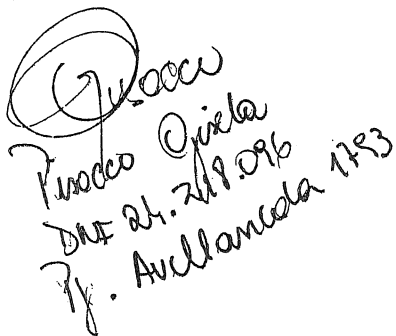 Pusocco
Pusocco Gisela
DNI 24.218.096
Pj. Avellaneda 1793